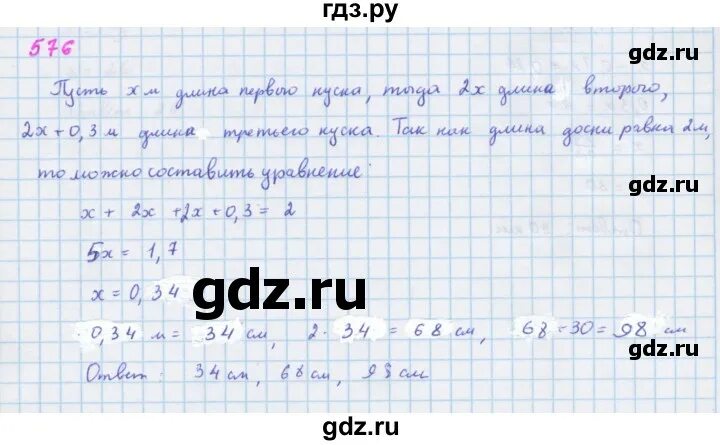 гдз.ру
576
gdz.ru
Пусть x м длина первого куска, тогда 2x длина второго,
2x+0,3 м длина третьего куска. Так как длина доски равна 2м,
gdz.ru
то можно составить уравнение:
x + 2x + 2x + 0,3 = 2
5x = 1,7
x = 0,34
gdz.ru
0,34 м = 34 см, 2 · 34 = 68 см, 68 + 30 = 98 см
gdz.ru
Ответ: 34 см, 68 см, 98 см
gdz.ru